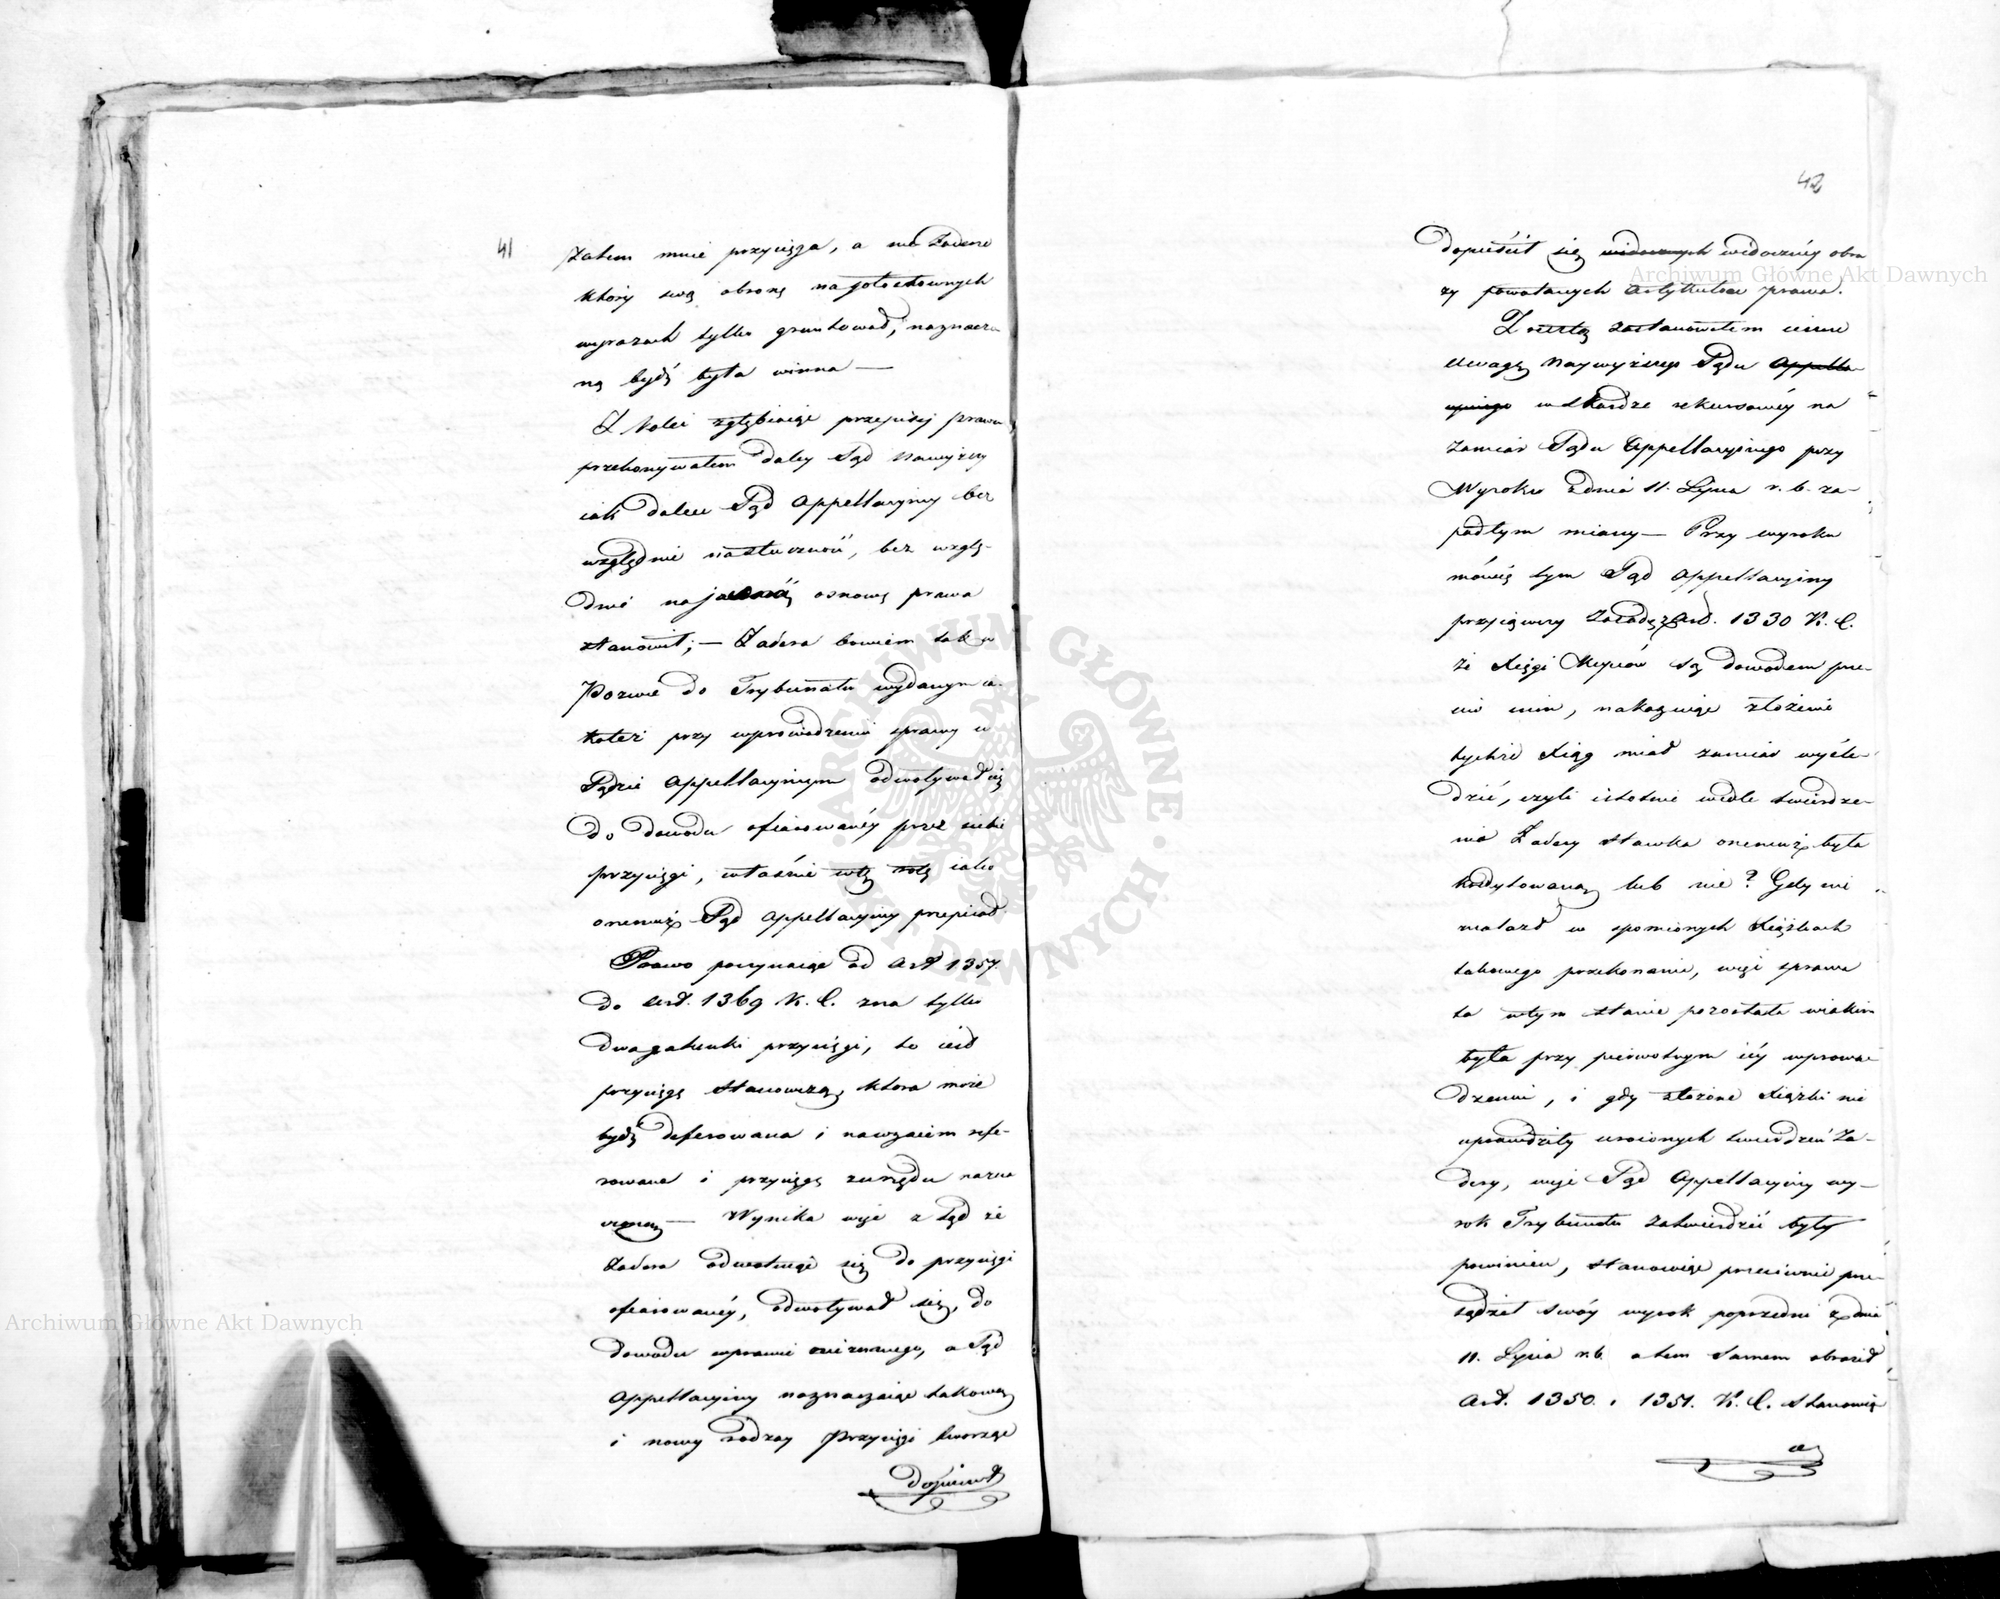 41
zatem mnie przysięga, a nie Zaderze
który swą obronę na gołosłownych
wyrazach tylko gruntował, naznaczo
ną bydź była winna —
Z kolei zgłębiaiąc przepisy prawa
przekonywałem daley Sąd Naywyższy
iak dalece Sąd Appellacyiny bez
względnie na słuszność, bez wzglę-
dnie na jasną osnowę prawa
stanowił; — Zadera bowiem tak w
Pozwie do Trybunału wydanym ia-
koteż przy wprowadzeniu sprawy w
Sądzie Appellacyinym odwoływał się
do dowodu ofiarowanéy przez siebie
przysięgi, właśnie w tę rotę iako
onemuż Sąd Appellacyiny przepisał
Prawo poczynaiąc od Art 1357.
do Art. 1369 K. C. zna tylko
dwa gatunki przysięgi, to iest
przysięgę stanowczą, która może
bydź deferowana i nawzaiem refe-
rowana i przysięgę z urzędu nazna
czoną — Wynika więc z tąd że
Zadera odwołuiąc się do przysięgi
ofiarowanéy, odwoływał się, do
dowodu w prawie nieznanego, a Sąd
Appellacyiny naznaczaiąc takową
i nowy rodzay Przysięgi tworząc
dopuścił
42
dopuścił się widocznych widocznéy obra
zy powołanych artykułów prawa.
Z resztą zastanowiłem ieszcze
uwagę Naywyższego Sądu Appella-
cyinego w skardze rekursowéy na
zamiar Sądu Appellacyinego przy
Wyroku z dnia 11. Lipca r. b. za-
padłym miany — Przy wyroku
mówię tym Sąd Appellacyiny
przyiąwszy zasadę z Art. 1330 K. C.
że Xięgi Kupców są dowodem prze-
ciw nim, nakazuiąc złożenie
tychże Xiąg miał zamiar wyśle-
dzić, czyli istotnie wedle twierdze-
nia Zadery stawka onemuż była
kredytowaną lub nie? Gdy nie
znalazł w spomionych Xiążkach
takowego przekonania, więc sprawa
ta w tym stanie pozostała w iakim
była przy pierwotnym iéy wprowa-
dzeniu, i gdy złożone Xiążki nie
sprawdziły uroionych twierdzeń Za-
dery, więc Sąd Appellacyiny wy-
rok Trybunału zatwierdzić były
powinien, stanowiąc przeciwnie prze-
sądził swóy wyrok poprzedni z dnia
11. Lipca r. b. a tem samem obraził
Art. 1350. i 1351. K. C. stanowią
ce
ARCHIWUM GŁÓWNE AKT DAWNYCH
Archiwum Główne Akt Dawnych
Archiwum Główne Akt Dawnych